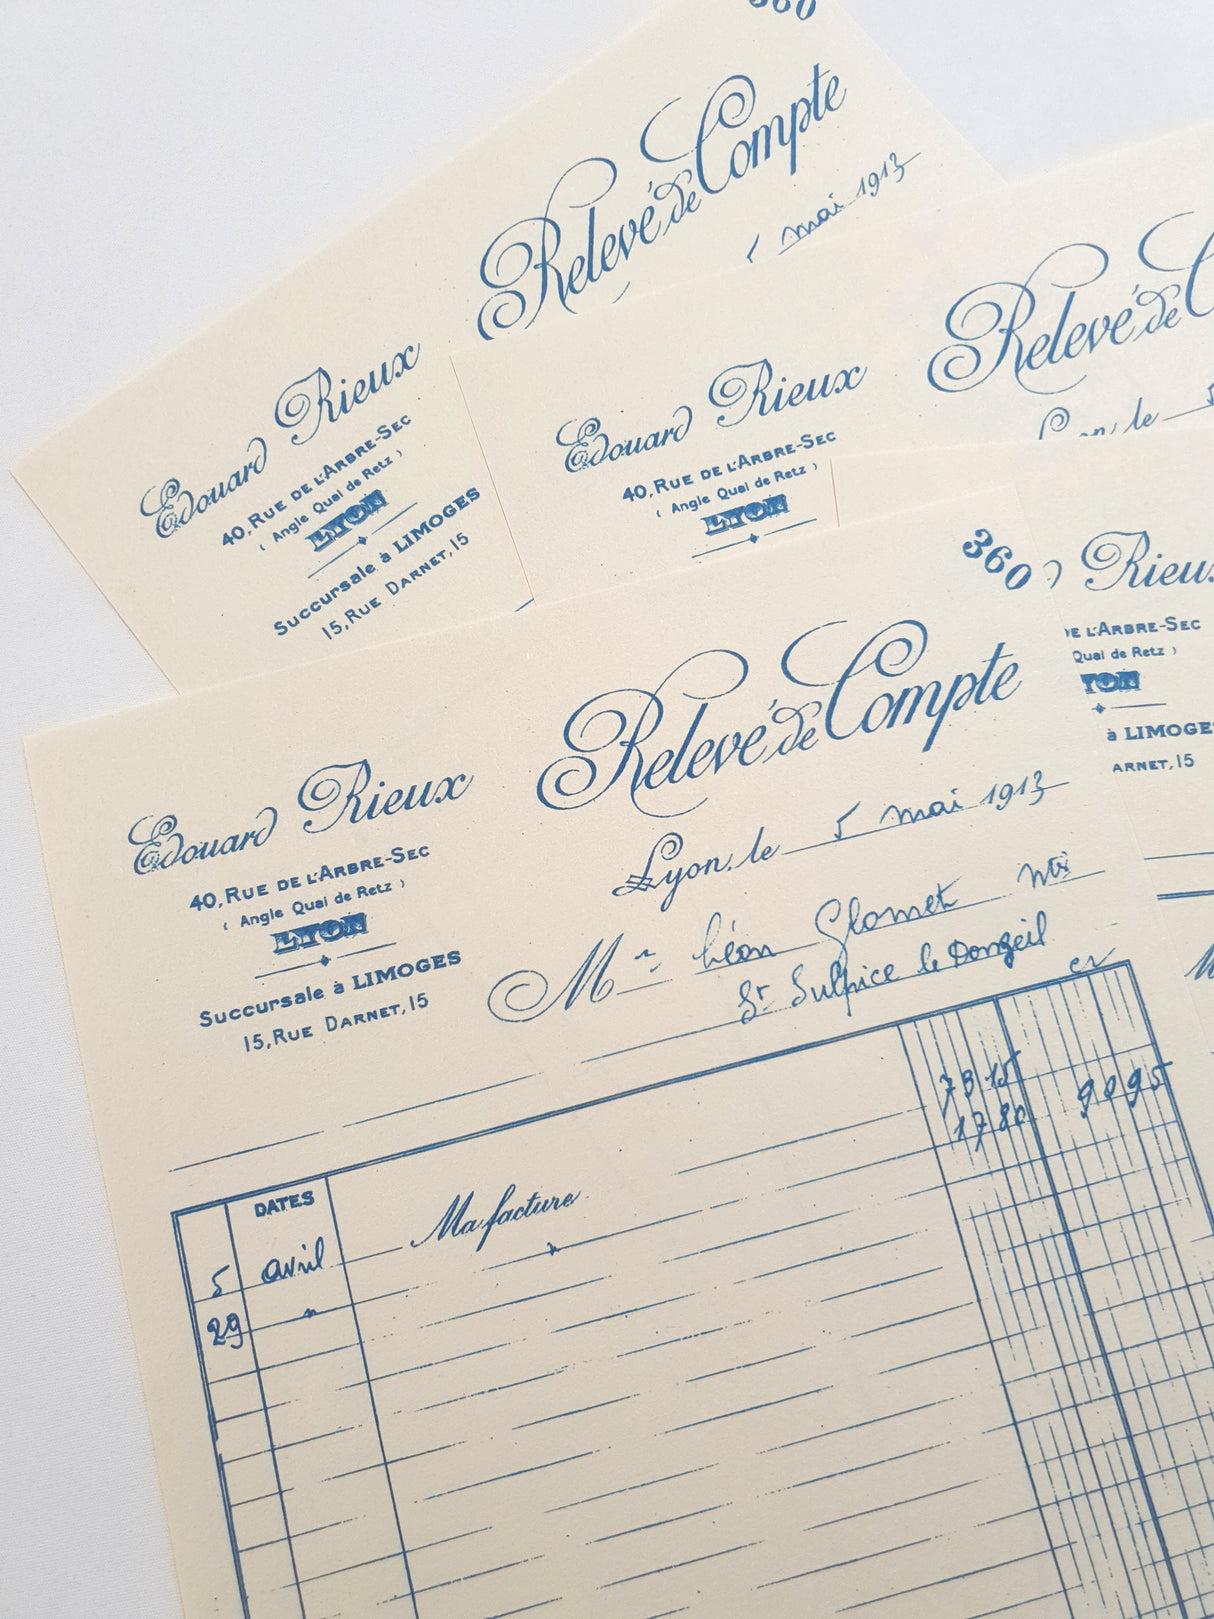 360
Relevé de Compte
5 mai 1913
Edouard Rieux
40, Rue de l'Arbre-Sec
( Angle Quai de Retz )
LYON
Succursale à LIMOGES
15, Rue Darnet, 15
Relevé de C
Lyon, le 5
Edouard Rieux
40, Rue de l'Arbre-Sec
( Angle Quai de Retz )
LYON
Rieux
de l'Arbre-Sec
Quai de Retz )
YON
à LIMOGES
arnet, 15
M
360
Relevé de Compte
Lyon, le 5 mai 1913
Edouard Rieux
40, Rue de l'Arbre-Sec
( Angle Quai de Retz )
LYON
Succursale à LIMOGES
15, Rue Darnet, 15
Mr Léon Glomet
St Sulpice le Dongeil
DATES
5 avril Ma facture 73 15
29 " " 17 80 90 95